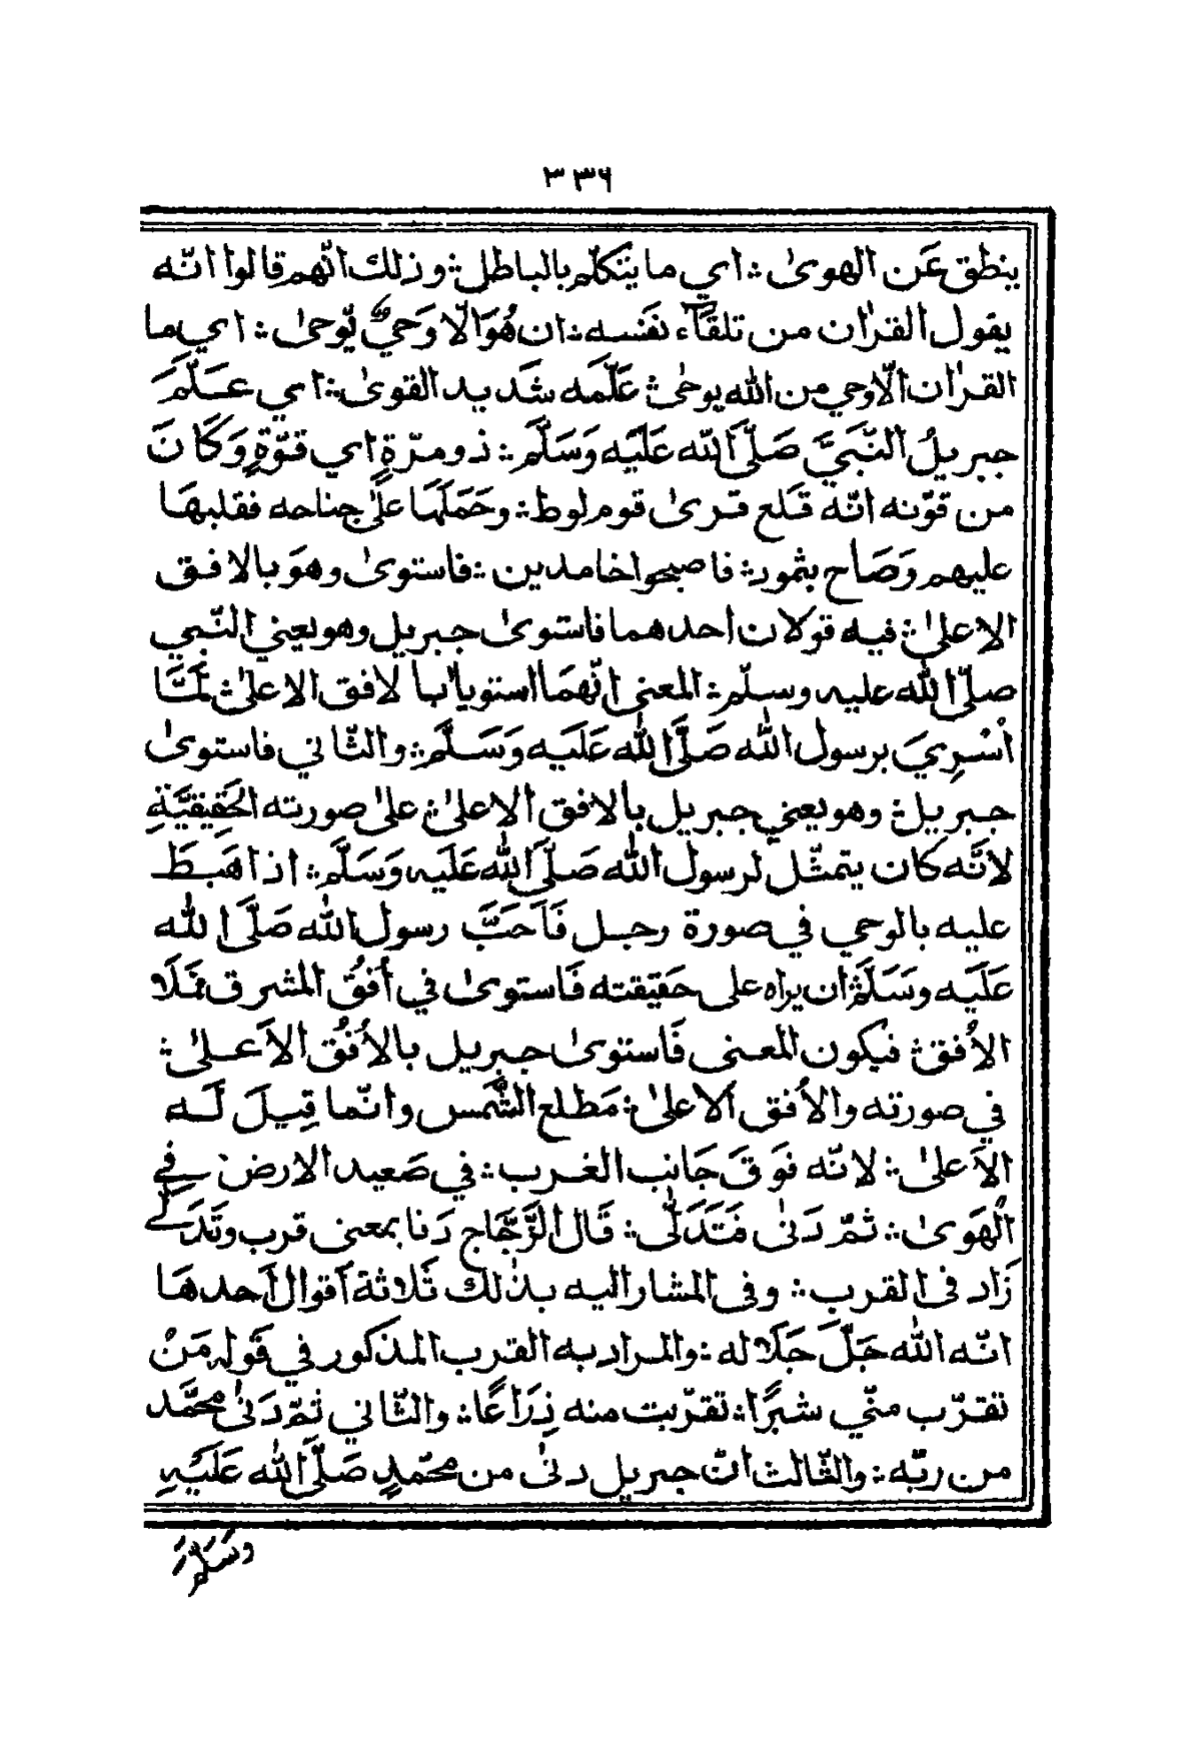 ٣٣٦
ينطق عَن الهوىٰ ؞ اي ما يتكلّم بالباطل ؞ وذلك انّهم قالوا انّه
يقول القرٰان من تلقآء نفسه ؞ ان هُوَ الّا وَحيٌ يّوحىٰ ؞ اي ما
القرٰان الّا وحي من الله يوحٰى ؞ عَلّمَه شَديد القوىٰ ؞ اي عَلّمَ
جبريلُ النّبيَّ صَلَّى اللّه عَلَيَه وَسَلَّمَ ؞ ذو مرّةٍ اي قوّةٍ وَكَانَ
من قوّته انّه قَلع قرىٰ قوم لوط ؞ وحَمَلَهَا علىٰ جناحه فقلبهَا
عليهم وَصَاح بثمود ؞ فاصبحوا خامدين ؞ فاستوىٰ وهوَ بالافق
الاعلىٰ ؞ فيه قولان احدهما فاستوىٰ جبريل وهو يعني النّبي
صلّى الله عليه وسلّم ؞ المعنى انّهمَا استويا بالافق الاعلىٰ ؞ لمَّا
اُسْرِيَ برسول الله صَلَّى الله عَلَيَه وَسَلَّمَ ؞ والثّاني فاستوىٰ
جبريل ؞ وهو يعني جبريل بالافق الاعلىٰ ؞ علىٰ صورته الحَقِيقيَّةِ
لانَّه كان يتمثّل لرسول الله صَلَّى الله عَلَيَه وَسَلَّمَ ؞ اذا هَبَطَ
عليه بالوحي في صورة رجل فَاَحَبَّ رسول الله صَلَّى الله
عَلَيَه وَسَلَّمَ ان يراه على حَقيقته فَاستوىٰ في اُفُق المشرق فمَلَا
الاُفق ؞ فيكون المعنى فَاستوىٰ جبريل بالاُفُق الاَعلىٰ ؞
في صورته والاُفق الاعلىٰ ؞ مَطلع الشّمس وانّما قِيلَ لَه
الاَعلىٰ ؞ لانّه فَوقَ جَانب الغرب ؞ في صَعيد الارض في
الْهَوىٰ ؞ ثمّ دَنىٰ فَتَدَلّٰى ؞ قَال الزَّجَّاج دَنا بمعنى قرب وتَدَلّٰى
زَاد فى القرب ؞ وفى المشار اليه بذٰلك ثَلاثة اَقوال اَحدهَا
انّه الله جَلّ جَلَاله ؞ والمراد به القرب المذكور في قَوله مَنْ
تقرّب منّي شبرًا ؞ تقرّبت منه ذِرَاعًا ؞ والثّاني ثمّ دَنىٰ محَمَّد
من ربّه ؞ والثّالث انّ جبريل دنىٰ من محمّدٍ صَلَّى الله عَلَيْهِ
وَسَلَّمَ